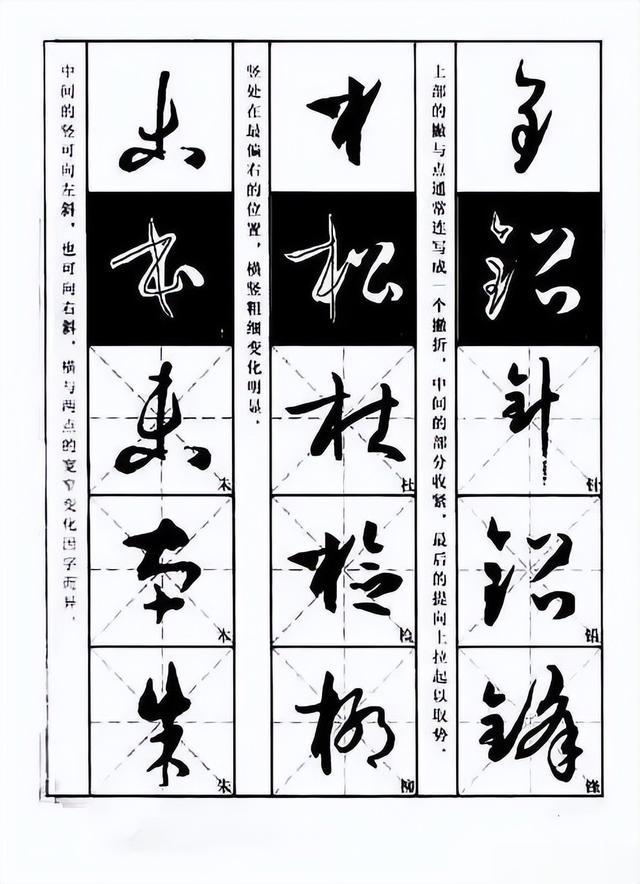 钅
铅
针
针
铅
铅
锋
锋
上部的撇与点通常连写成一个撇折，中间的部分收紧，最后的提向上拉起以取势。
木
松
杜
杜
检
检
柳
柳
竖处在最偏右的位置，横竖粗细变化明显。
木
本
本
朱
朱
中间的竖可向左斜，也可向右斜，横与两点的宽窄变化因字而异。